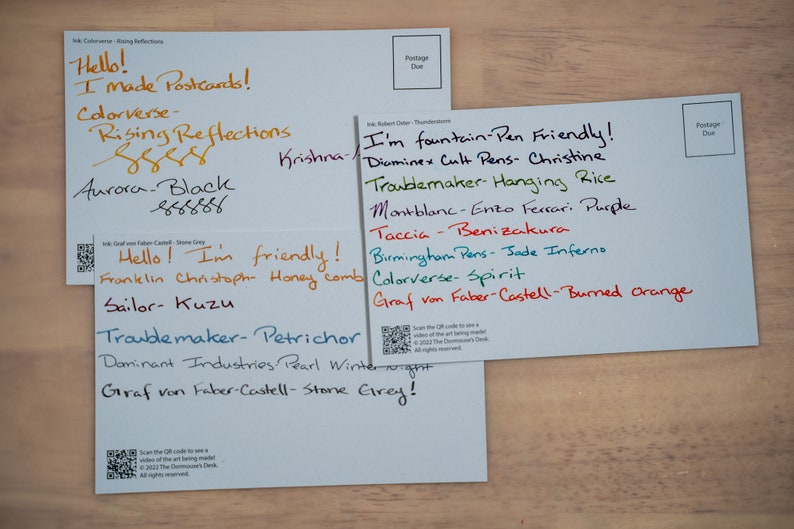 Ink: Colorverse - Rising Reflections
Postage
Due
Hello!
I made Postcards!
Colorverse-
Rising Reflections
Krishna-
Aurora-Black
Ink: Robert Oster - Thunderstorm
Postage
Due
I'm fountain-Pen Friendly!
Diamine x Cult Pens- Christine
Troublemaker- Hanging Rice
Montblanc- Enzo Ferrari Purple
Taccia - Benizakura
Birmingham Pens- Jade Inferno
Colorverse- Spirit
Graf von Faber-Castell-Burned Orange
Scan the QR code to see a
video of the art being made!
© 2022 The Dormouse's Desk.
All rights reserved.
Ink: Graf von Faber-Castell - Stone Grey
Hello! I'm friendly!
Franklin Christoph- Honey comb
Sailor- Kuzu
Troublemaker- Petrichor
Dominant Industries-Pearl Winter Night
Graf von Faber-Castell- Stone Grey!
Scan the QR code to see a
video of the art being made!
© 2022 The Dormouse's Desk.
All rights reserved.